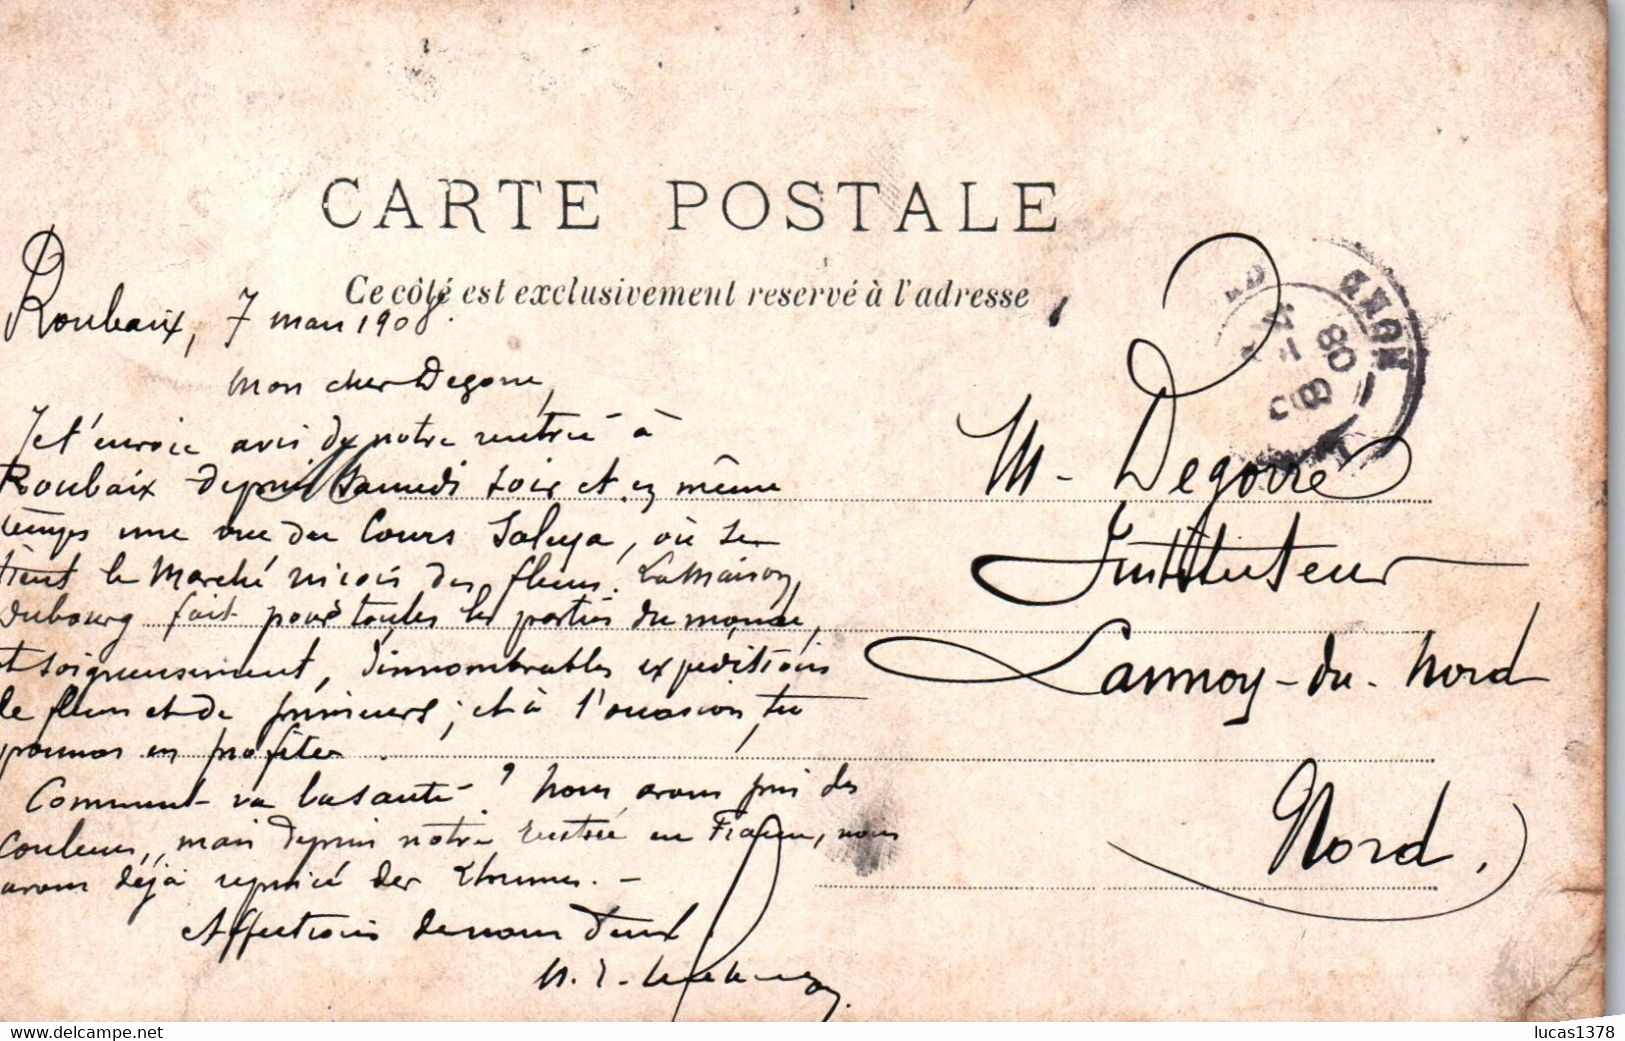 CARTE POSTALE
Ce côté est exclusivement reservé à l'adresse
Roubaix, 7 mars 1908.
Mon cher Degorre,
Je t'envoie avis de notre rentrée à
Roubaix depuis Samedi soir et en même
temps une vue du Cours Saleya, où se
tient le Marché niçois des fleurs. La Maison
Dubourg fait pour toutes les parties du monde,
et soigneusement, d'innombrables expéditions
de fleurs et de primeurs ; et à l'occasion, tu
pourras en profiter.
Comment va la santé ? Nous avons pris des
couleurs, mais depuis notre rentrée en France, nous
avons déjà repincé des rhumes. –
Affections de nous deux.
M. Degorre
Instituteur
Lannoy-du-Nord
Nord.
NORD
08
www.delcampe.net
lucas1378